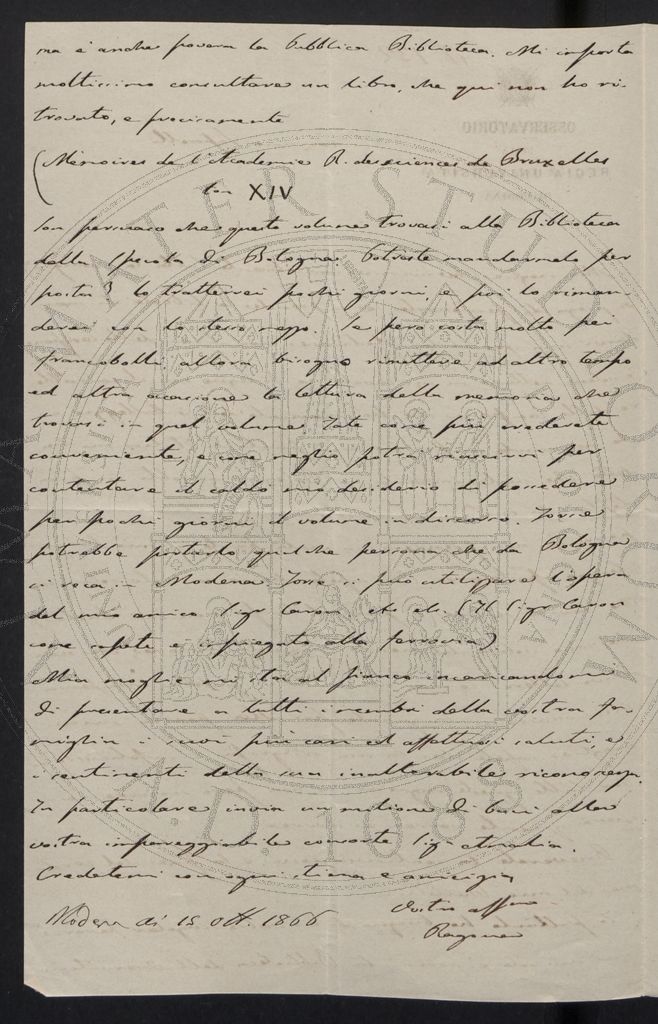 ma è anche povera la pubblica Biblioteca. Mi importa
moltissimo consultare un libro, che qui non ho ri-
trovato, e precisamente
(Mémoires de l'Academie R. des sciences de Bruxelles
tom XIV
Son persuaso che questo volume trovasi alla Biblioteca
della Specola di Bologna. Potreste mandarmelo per
posta? Lo tratterrei pochi giorni, e poi lo riman-
derei con lo stesso mezzo. Se però costa molto pei
francobolli, allora bisogna rimettere ad altro tempo
ed altra occasione la lettura della memoria che
trovasi in quel volume. Fate come più crederete
conveniente, e come meglio potrà riuscirvi per
contentare il caldo mio desiderio di possedere
per pochi giorni il volume in discorso. Forse
potrebbe portarlo qualche persona che da Bologna
si reca in Modena. Forse si può utilizzare l'opera
del mio amico Sigr Caron etc etc. (Il Sigr Caron
come sapete è impiegato alla ferrovia).
Mia moglie mi sta al fianco incaricandomi
di presentare a tutti i membri della vostra fa-
miglia i suoi più cari ed affettuosi saluti, e
i sentimenti della sua inalterabile riconoscza.
In particolare invia un milione di baci alla
vostra impareggiabile consorte Siga Amalia.
Credetemi con ogni stima e amicizia
Modena di 15 ott. 1866
Vostro affmo
Ragona
OSSERVATORIO
REGIA UNIVERSITÀ
ALMA MATER STUDIORUM
A.D. 1088